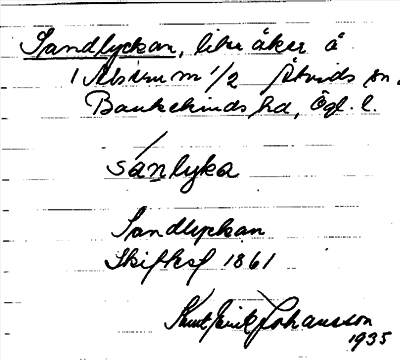 Sandlyckan, liten åker å
1 m 1/2 Åtvids sn,
Bankekinds hd, Ögl. l.
sánlyka
Sandlyckan
Skiftesk 1861
Knut Erik Johansson
1935